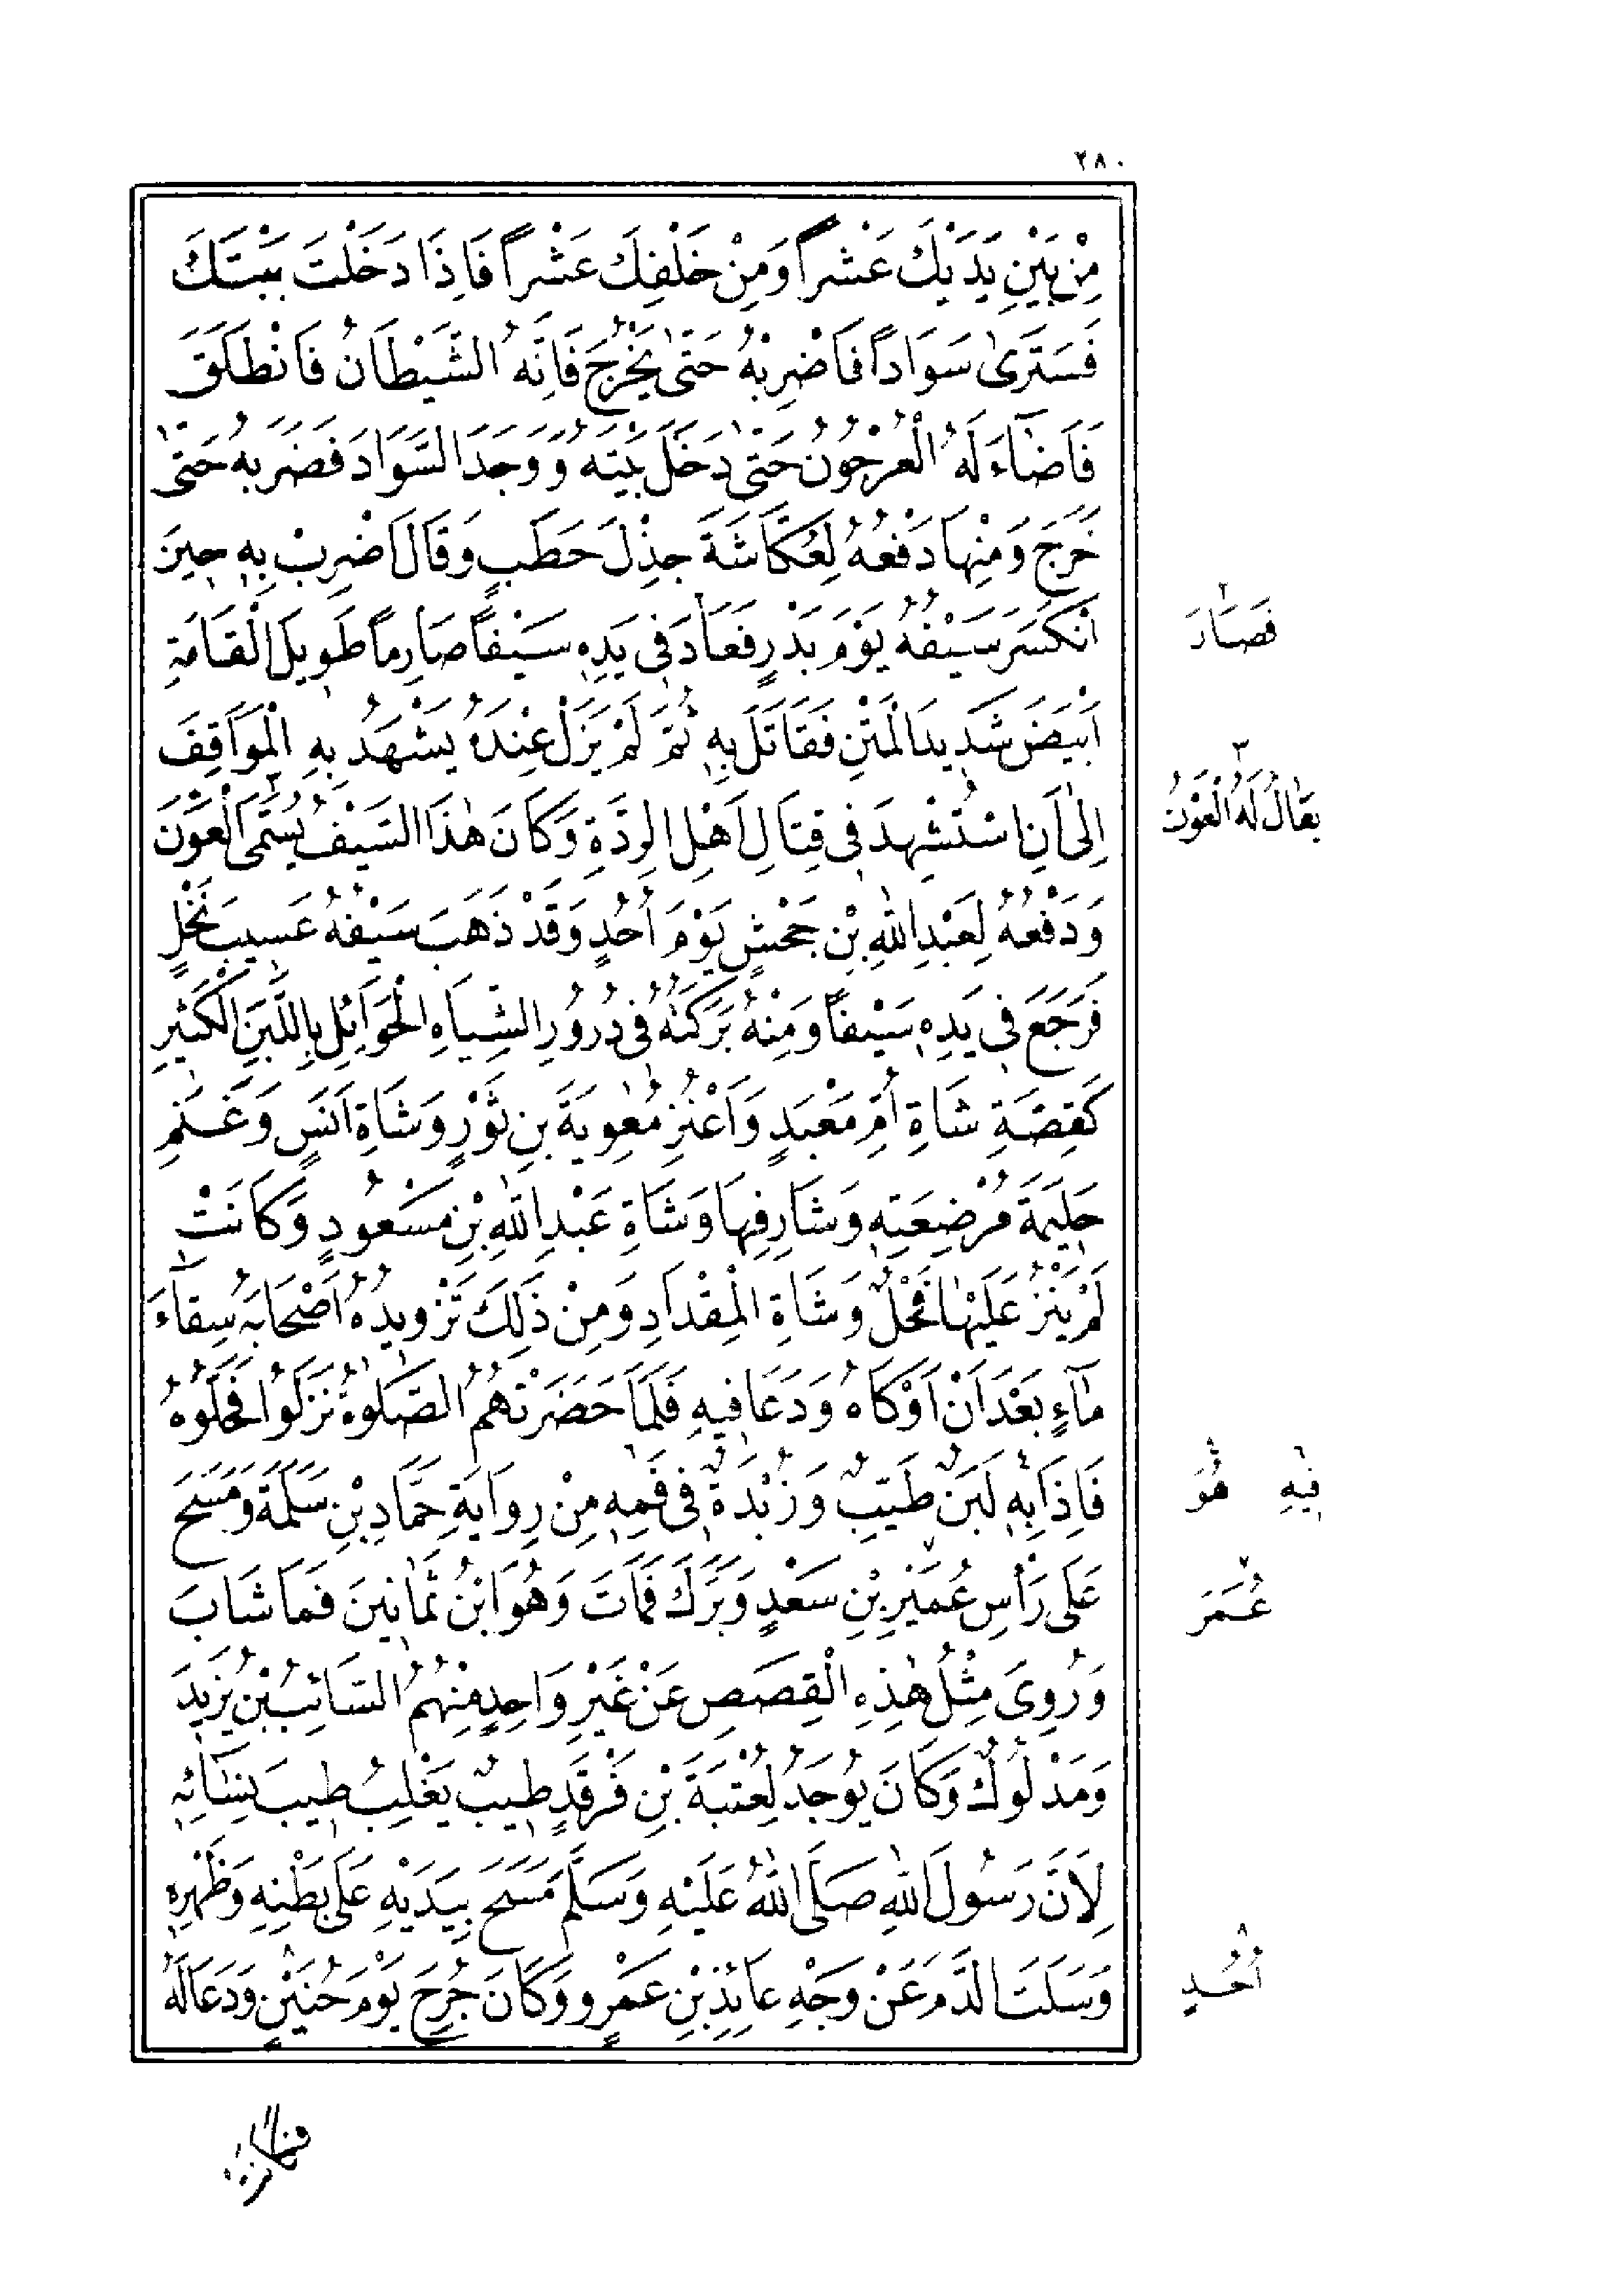 ٢٨٠
مِنْ بَيْنِ يَدَيْكَ عَشْراً وَمِنْ خَلْفِكَ عَشْراً فَاِذَا دَخَلْتَ بَيْتَكَ
فَسَتَرٰى سَوَاداً فَاضْرِبْهُ حَتّٰى يَخْرُجَ فَاِنَّهُ الشَّيْطَانُ فَانْطَلَقَ
فَاَضَٓاءَ لَهُ الْعُرْجُونُ حَتّٰى دَخَلَ بَيْتَهُ وَوَجَدَ السَّوَادَ فَضَرَبَهُ حَتّٰى
خَرَجَ وَمِنْهَا دَفْعُهُ لِعُكَّاشَةَ جِذْلَ حَطَبٍ وَقَالَ اَضْرِبْ بِهِ حِينَ
اَنْكَسَرَ سَيْفُهُ يَوْمَ بَدْرٍ فَعَادَ فِى يَدِهِ سَيْفاً صَارِماً طَوِيلَ الْقَامَةِ
فَصَارَ ٢
اَبْيَضَ شَدِيدَ الْمَتْنِ فَقَاتَلَ بِهِ ثُمَّ لَمْ يَزَلْ عِنْدَهُ يَشْهَدُ بِهِ الْمَوَاقِفَ
اِلٰى اَنِ اسْتُشْهِدَ فِى قِتَالِ اَهْلِ الرِدَّةِ وَكَانَ هٰذَا السَيْفُ يُسَمَّى الْعَوْنَ
يقَالُ لَهُ الْعَوْنُ ٣
وَدَفْعُهُ لِعَبْدِ اللّٰهِ بْنِ جَحْشٍ يَوْمَ اُحُدٍ وَقَدْ ذَهَبَ سَيْفُهُ عَسِيبَ نَخْلٍ
فَرَجَعَ فِى يَدِهِ سَيْفاً وَمِنْهُ بَرَكَتُهُ فِى دُرُورِ الشِّيَاهِ الْحَوَائِلِ بِاللَّبَنِ الْكَثِيرِ
كَقِصَّةِ شَاةِ اُمِّ مَعْبَدٍ وَاَعْنُزِ مُعٰوِيَةَ بِنِ ثَوْرٍ وَشَاةِ اَنَسٍ وَغَنَمِ
حَلِيمَةَ مُرْضِعَتِهِ وَشَارِفِهَا وَشَاةِ عَبْدِ اللّٰهِ بْنِ مَسْعُودٍ وَكَانَتْ
لَمْ يَنْزُ عَلَيْهَا فَحْلٌ وَشَاةِ الْمِقْدَادِ وَمِنْ ذَلِكَ تَزْوِيدُهُ اَصْحَابَهُ سِقَٓاءَ
مَٓاءٍ بَعْدَ اَنْ اَوْكَاهُ وَدَعَا فِيهِ فَلَمَّا حَضَرَتْهُمُ الصَّلٰوةُ نَزَلُوا فَحَلُّوهُ
فَاِذَا بِهِ لَبَنٌ طَيِّبٌ وَزُبْدَةٌ فِى فَمِهِ مِنْ رِوَايَةِ حَمَّادِ بْنِ سَلَمَةَ وَمَسَحَ
هُوَ فِيهِ ٦
عَلَى رَأْسِ عُمَيْرِ بْنِ سَعْدٍ وَبَرَّكَ فَمَاتَ وَهُوَ ابْنُ ثَمَانِينَ فَمَا شَابَ
عُمَرَ ٧
وَرُوِىَ مِثْلُ هٰذِهِ الْقِصَصِ عَنْ غَيْرِ وَاحِدٍ مِنْهُمُ السَّائِبُ بْنُ يَزِيدَ
وَمَدْلُوكٌ وَكَانَ يُوجَدُ لِعُتْبَةَ بْنِ فَرْقَدٍ طِيبٌ يَغْلِبُ طِيبَ نِسَائِهِ
لِاَنَّ رَسُولَ اللّٰهِ صَلَّى اللّٰهُ عَلَيْهِ وَسَلَّمَ مَسَحَ بِيَدَيْهِ عَلَى بَطْنِهِ وَظَهْرِهِ
وَسَلَتَ الدَّمَ عَنْ وَجْهِ عَائِذِ بْنِ عَمْرٍو وَكَانَ جُرِحَ يَوْمَ حُنَيْنٍ وَدَعَا لَهُ
اُحُدٍ ٨
فكانت